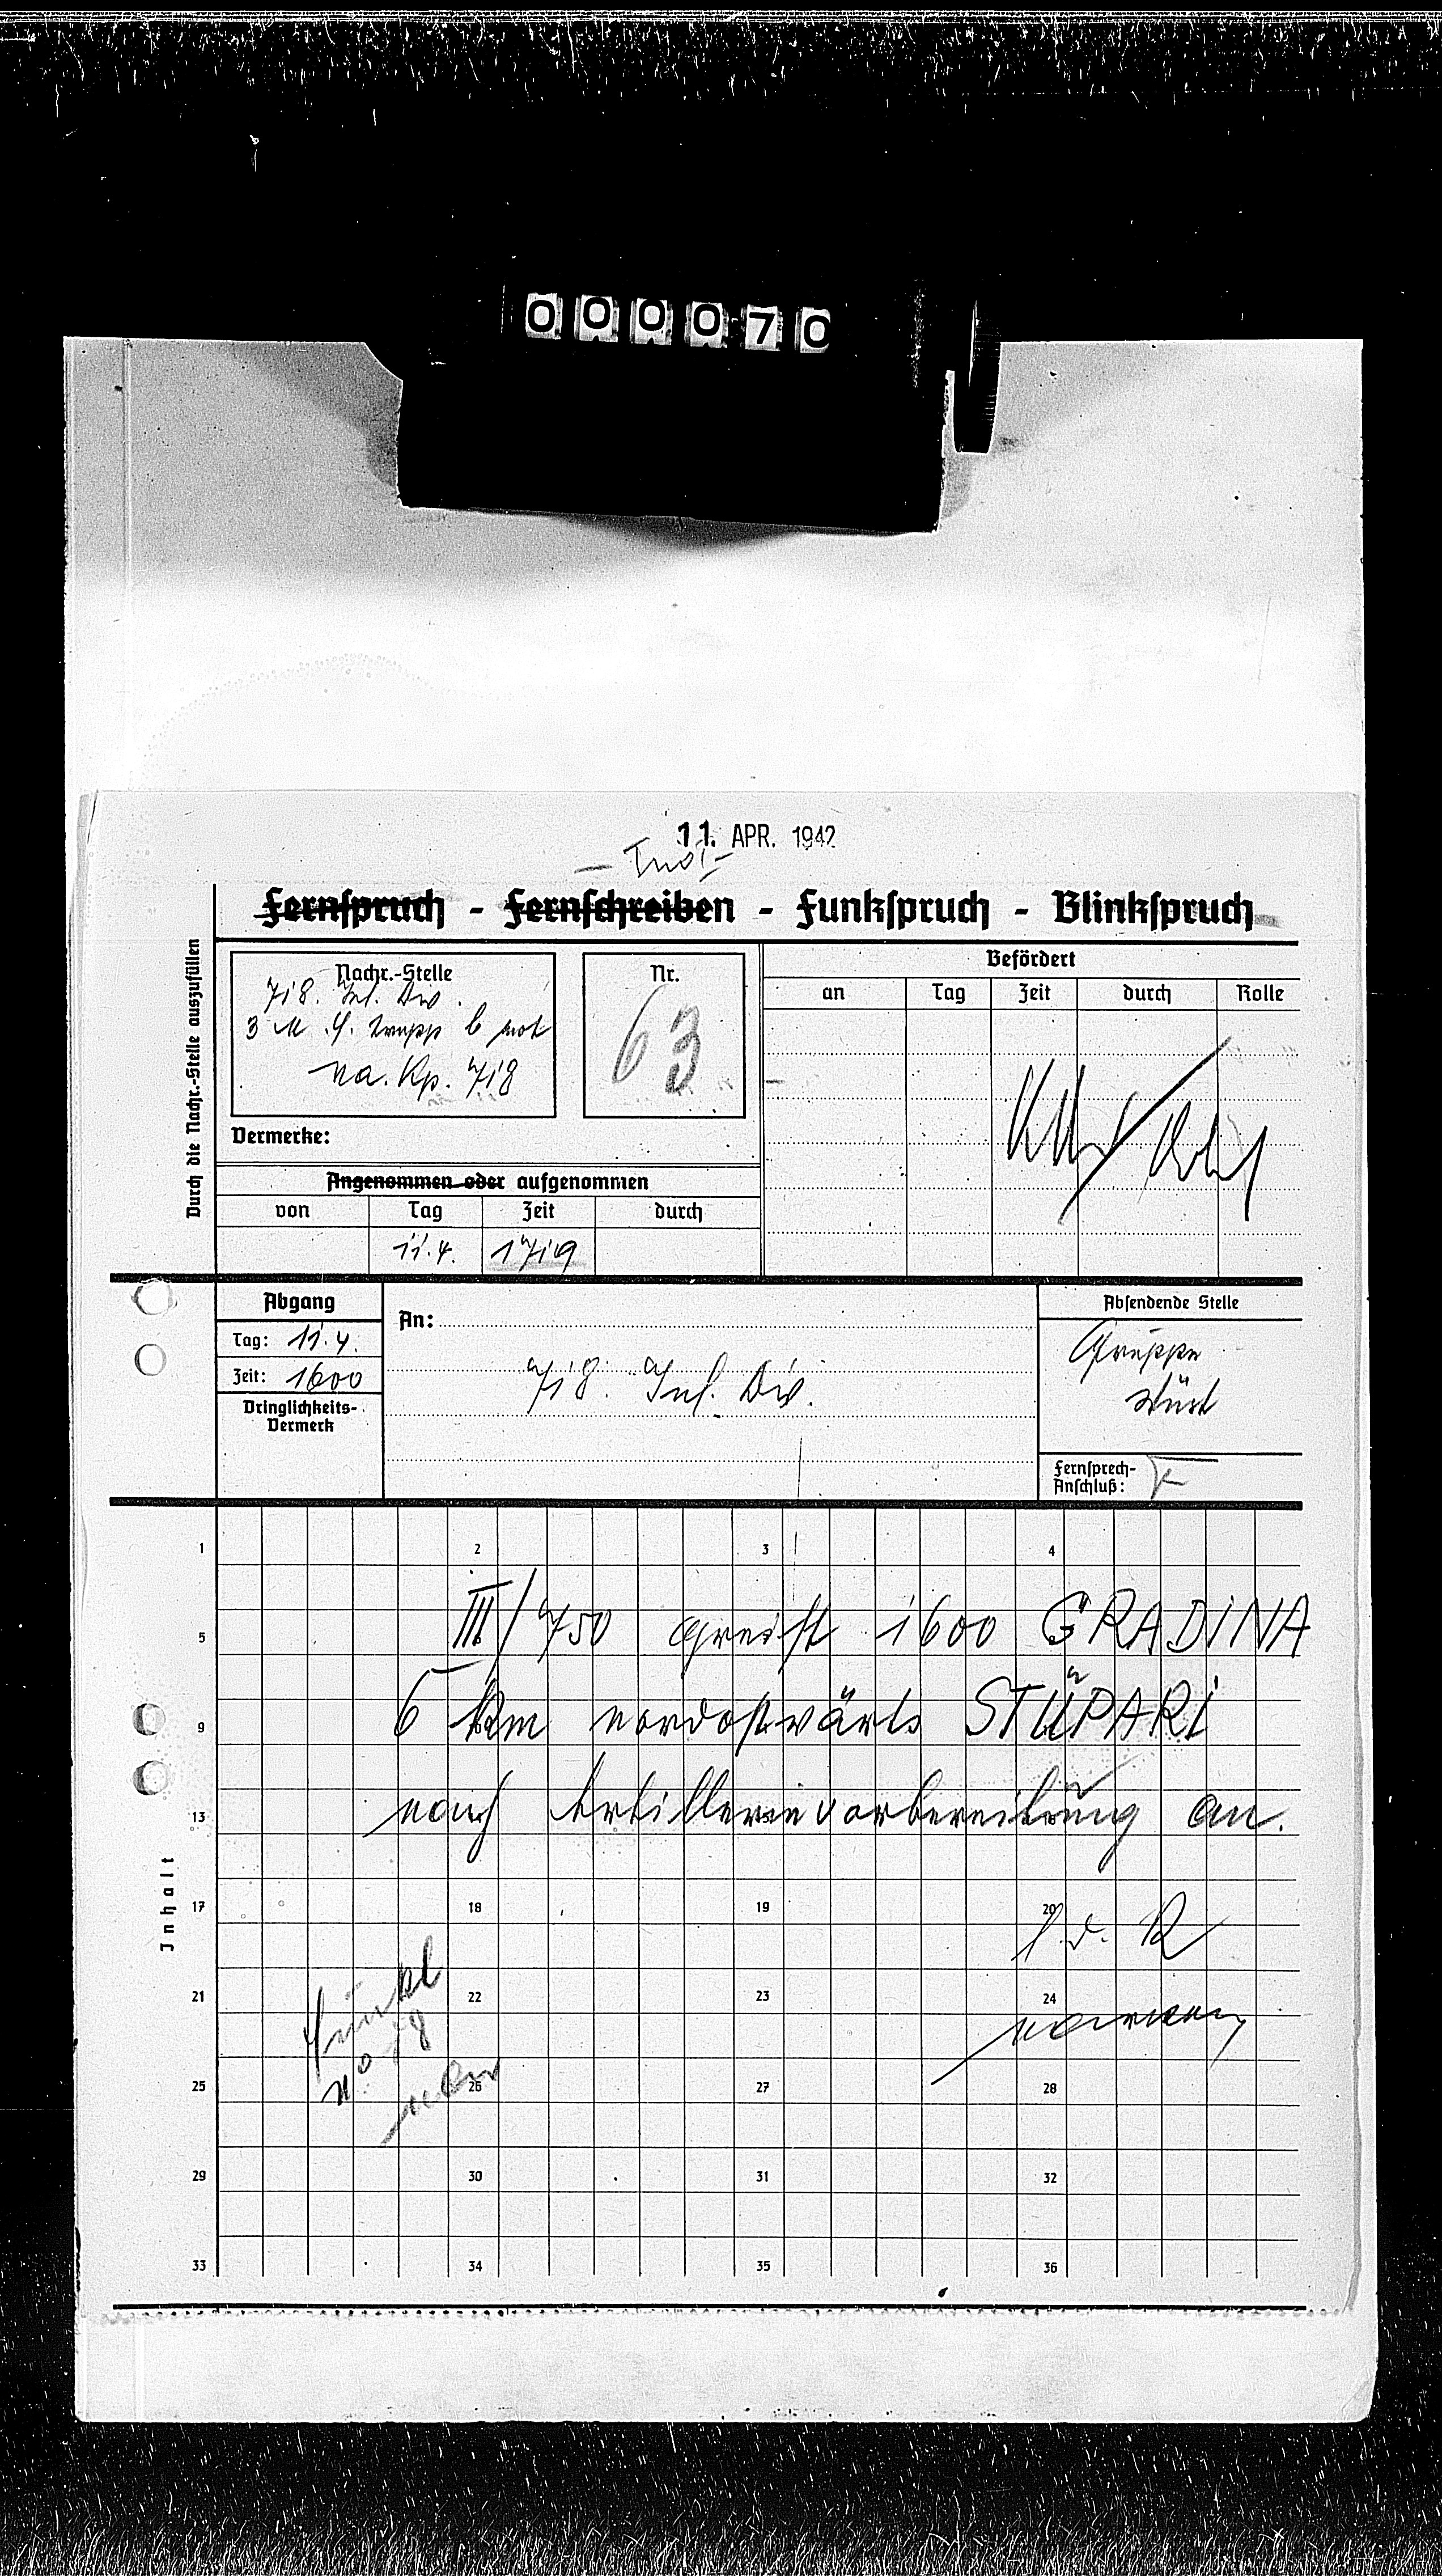 000070
11. APR. 1942
Fernspruch - Fernschreiben - Funkspruch - Blinkspruch
Durch die Nachr.-Stelle auszufüllen
Nachr.-Stelle
718. Inf. Div.
3 M. F. Trupp b mot
Na. Kp. 718
Nr.
63
Befördert
an Tag Zeit durch Rolle
Vermerke:
Angenommen oder aufgenommen
von Tag Zeit durch
11.4. 1719
Abgang
Tag: 11.4.
Zeit: 1600
Dringlichkeits-
Vermerk
An:
718. Inf. Div.
Absendende Stelle
Gruppe
Wüst
Fernsprech-
Anschluß:
Inhalt
1 2 3 4
III/750 greift 1600 GRADINA
5
6 km nordostwärts STŬPARI
9
nach Artillerievorbereitung an.
13
17 18 19 20
f. d. R
21 22 23 24
25 26 27 28
29 30 31 32
33 34 35 36